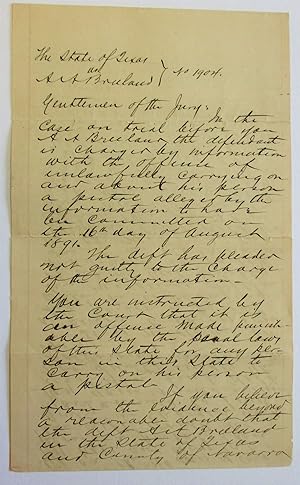 The State of Texas
vs } No 1904.
A A Breeland
Gentlemen of the Jury:
In the
case on trial before you
A A Breeland the defendant
is charged by information
with the offence of
unlawfully carrying on
and about his person
a pistol alleged by the
information to have
been committed on
the 16th day of August
1891.
The deft has pleaded
not guilty to the charge
of the information—
You are instructed by
the Court that it is
an offense made punish-
able by the penal laws
of this State for any per-
son in this State to
carry on his person
a pistol—
If you believe
from the evidence beyond
a reasonable doubt that
the deft A A Breeland
in the State of Texas
and County of Navarro